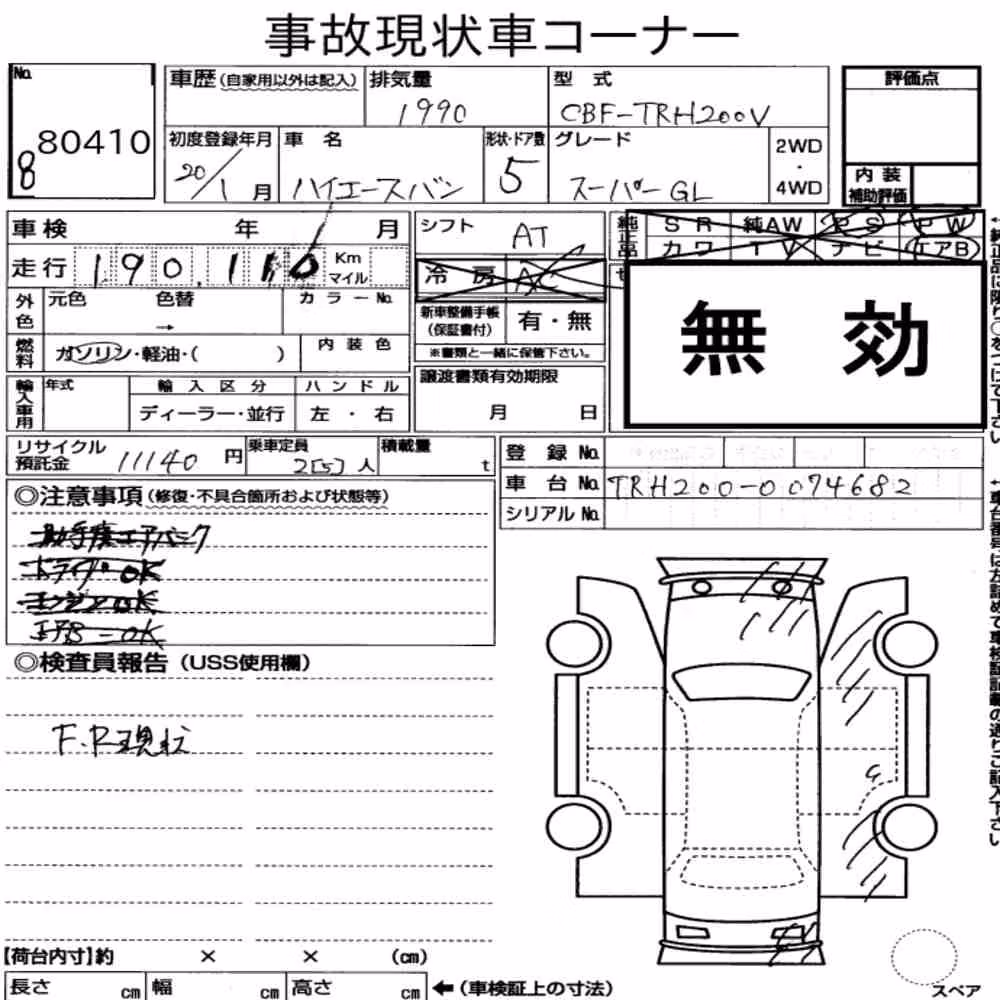 事故現状車コーナー
No. 880410
車歴(自家用以外は記入) 排気量 1990 型式 CBF-TRH200V
評価点
初度登録年月 20/1月 車名 ハイエースバン 形状・ドア数 5 グレード スーパーGL 2WD・4WD
内装補助評価
車検 年 月 シフト AT
純正品 SR 純AW PS PW
カワ TV ナビ エアB
走行 190,110 Km マイル 冷房 AC
外色 元色 色替 → カラーNo.
新車整備手帳(保証書付) 有・無
※書類と一緒に保管下さい。
無効
燃料 ガソリン・軽油・( ) 内装色
輸入車用 年式 輸入区分 ハンドル
ディーラー・並行 左・右
譲渡書類有効期限
月 日
リサイクル預託金 11140円 乗車定員 2[5]人 積載量 t
登録No.
車台No. TRH200-0074682
シリアルNo.
◎注意事項(修復・不具合箇所および状態等)
助手席エアバック
ドライブ OK
エンジン OK
エアB - OK
◎検査員報告(USS使用欄)
F.R現状
【荷台内寸】約 × × (cm)
長さ cm 幅 cm 高さ cm ←(車検証上の寸法)
スペア
←純正品に限り○をつけて下さい
←車台番号は左詰めで車検証記載の通りご記入下さい